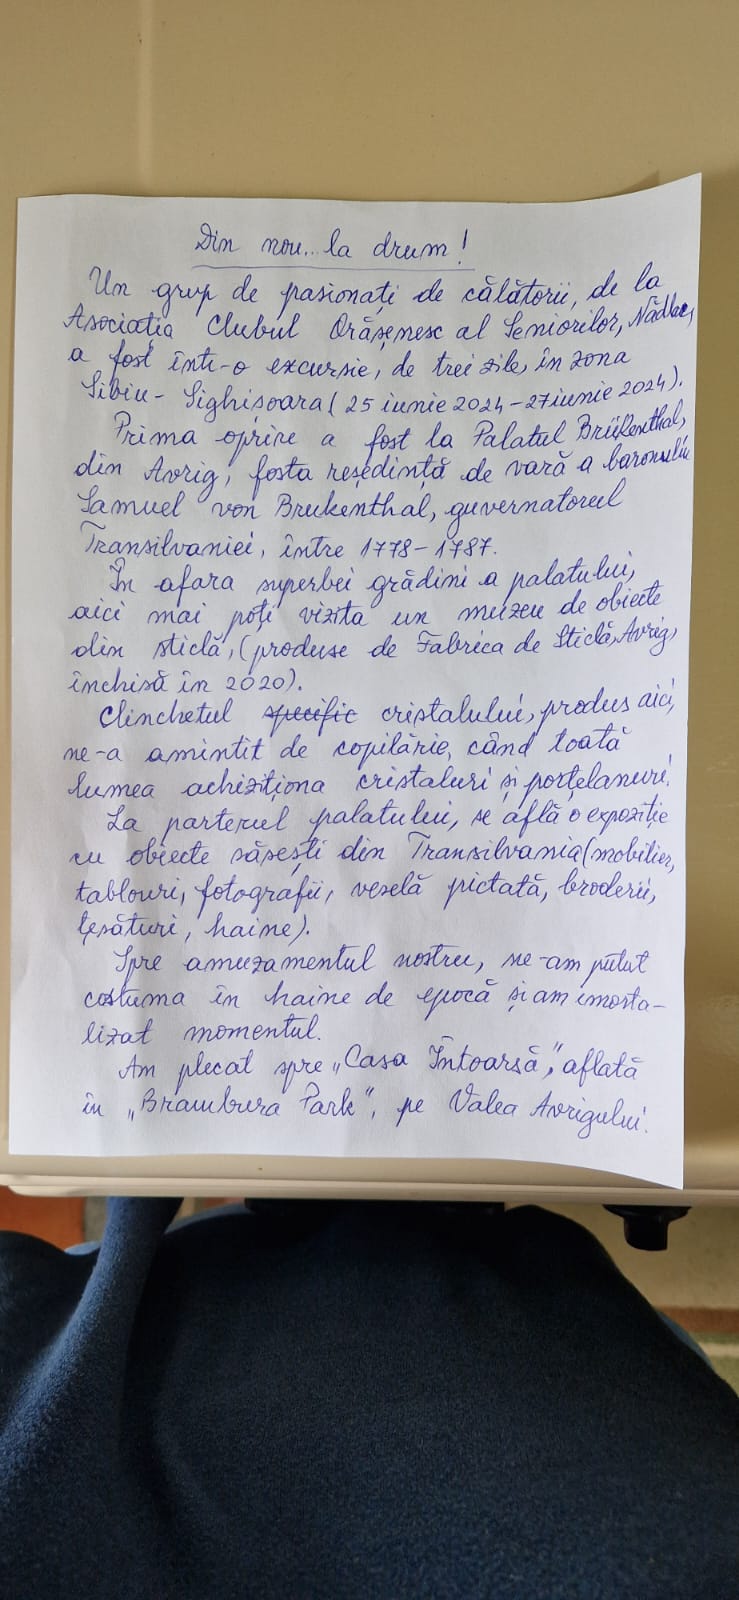 Din nou... la drum!
Un grup de pasionați de călătorii, de la
Asociația Clubul Orășenesc al Seniorilor, Nădlac,
a fost într-o excursie, de trei zile, în zona
Sibiu - Sighișoara (25 iunie 2024 - 27 iunie 2024).
Prima oprire a fost la Palatul Brükenthal,
din Avrig, fosta reședință de vară a baronului
Samuel von Brukenthal, guvernatorul
Transilvaniei, între 1778 - 1787.
În afara superbei grădini a palatului,
aici mai poți vizita un muzeu de obiecte
din sticlă, (produse de Fabrica de Sticlă, Avrig,
închisă în 2020).
Clinchetul specific cristalului, produs aici,
ne-a amintit de copilărie, când toată
lumea achiziționa cristaluri și porțelanuri.
La parterul palatului, se află o expoziție
cu obiecte săsești din Transilvania (mobilier,
tablouri, fotografii, veselă pictată, broderii,
țesături, haine).
Spre amuzamentul nostru, ne-am putut
costuma în haine de epocă și am imorta-
lizat momentul.
Am plecat spre „Casa Întoarsă”, aflată
în „Brambura Park”, pe Valea Avrigului.